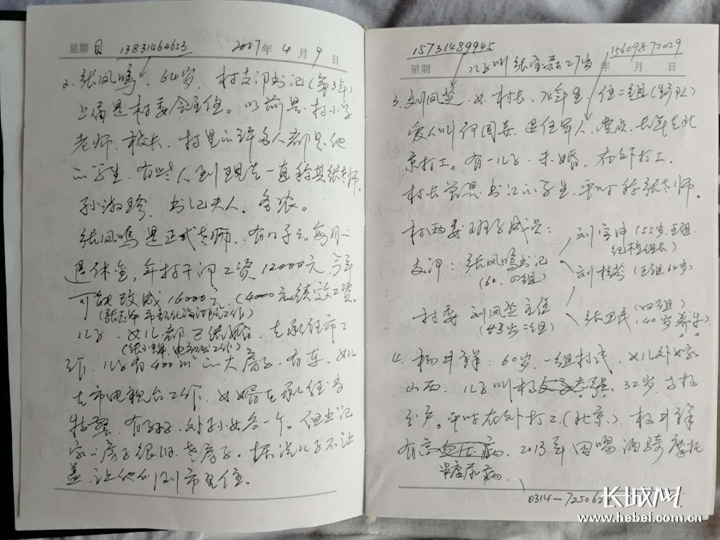 星期日 13831464653 2017年4月9日
2. 张凤鸣、64岁、村支部书记(第3年)
上届是村委会主任。以前是村小学
老师、校长、村里的许多人都是他
的学生。有些人到现在一直称其张老师。
孙淑珍 书记夫人、务农。
张凤鸣是正式老师、有 每月
退休金,年村干部工资12000元,今年
可能改成16000元(4000元绩效工资
儿子、女儿都已结婚、在承德市工
作,儿子有400㎡的大房子、有车。女儿
在市电视台工作、女婿在承德当
特警。有孙子、外孙女各一个。但书记
家的房子很旧、老房子。据说儿子不让
盖、让他们到市里住。
15731489945 15609872029
星期 儿子叫张 27岁 年 月 日
3. 刘凤芝、女、村长、76年生、住二组(生产队)
爱人叫何国 退伍军人、党员、去年在北
京打工。有一儿子、未婚、在外打工。
村长曾是书记的学生、平时称张老师。
村两委班子成员:
支部:张凤鸣书记
(60、四组)
刘 (55岁、五组
纪检组长)
刘桂 (五组60岁)
村委 刘凤芝主任
(43岁二组)
张卫民(四组)
(40岁养牛)
4. 杨井祥:60岁、一组村民、女儿外嫁
山西、儿子叫杨 32岁
分户。平时在外打工(北京)。杨井祥
有高血压病、2013年因喝酒骑摩托
糖尿病
0314-725062
长城网
www.hebei.com.cn